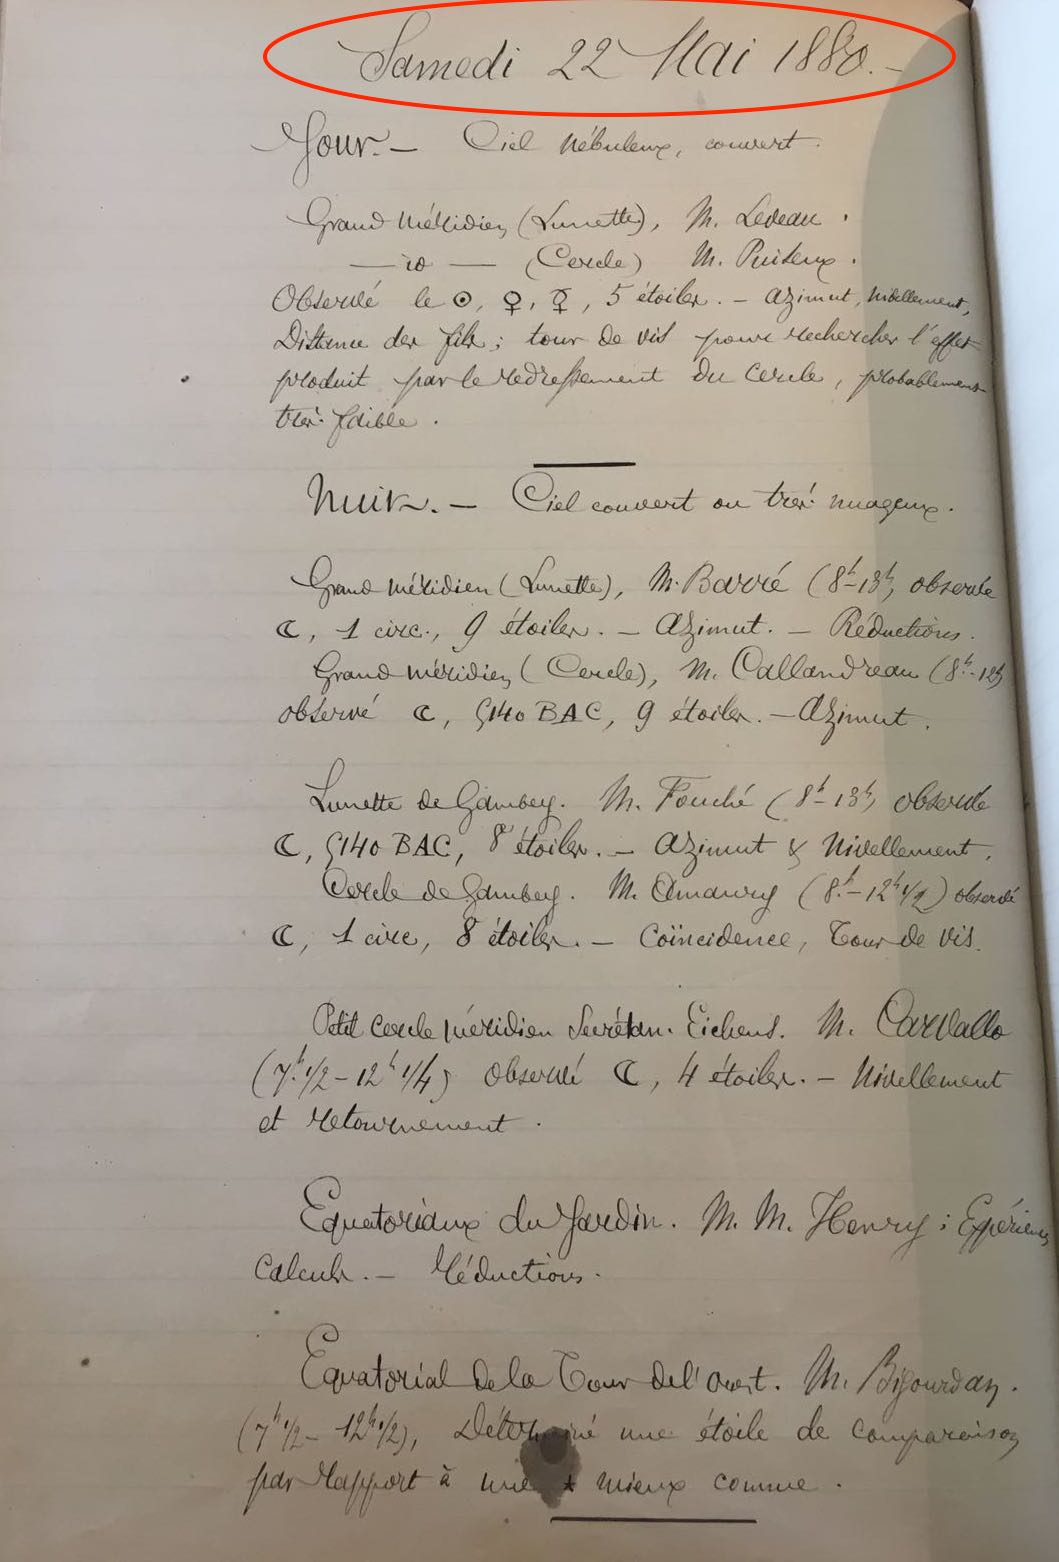 Samedi 22 Mai 1880.—
Jour.— Ciel nébuleux, couvert.
Grand méridien (Lunette), M. Leveau.
— id — (Cercle) M. Puiseux.
Observé le ☉, ♀, ☿, 5 étoiles. — Azimut, Nivellement,
Distance des fils; tour de vis pour rechercher l'effet
produit par le redressement du cercle, probablement
très faible.
Nuit.— Ciel couvert ou très nuageux.
Grand méridien (Lunette), M. Barré (8h–13h) observé
☾, 1 circ., 9 étoiles. — Azimut. — Réductions.
Grand méridien (Cercle), M. Callandreau (8h–12h)
observé ☾, 5140 BAC, 9 étoiles. — Azimut.
Lunette de Gambey. M. Fouché (8h–13h) observé
☾, 5140 BAC, 8 étoiles. — Azimut & Nivellement.
Cercle de Gambey. M. Amaury (8h–12h 1/2) observé
☾, 1 circ, 8 étoiles. — Coïncidence, Tour de vis.
Petit cercle méridien Secrétan-Eichens. M. Carvallo
(7h 1/2 – 12h 1/4) observé ☾, 4 étoiles. — Nivellement
et retournement.
Equatoriaux du Jardin. M. M. Henry: Expériences
Calculs. — Réductions.
Equatorial de la Tour de l'Ouest. M. Bigourdan.
(7h 1/2 – 12h 1/2), Déterminé une étoile de comparaison
par rapport à une ★ mieux connue.